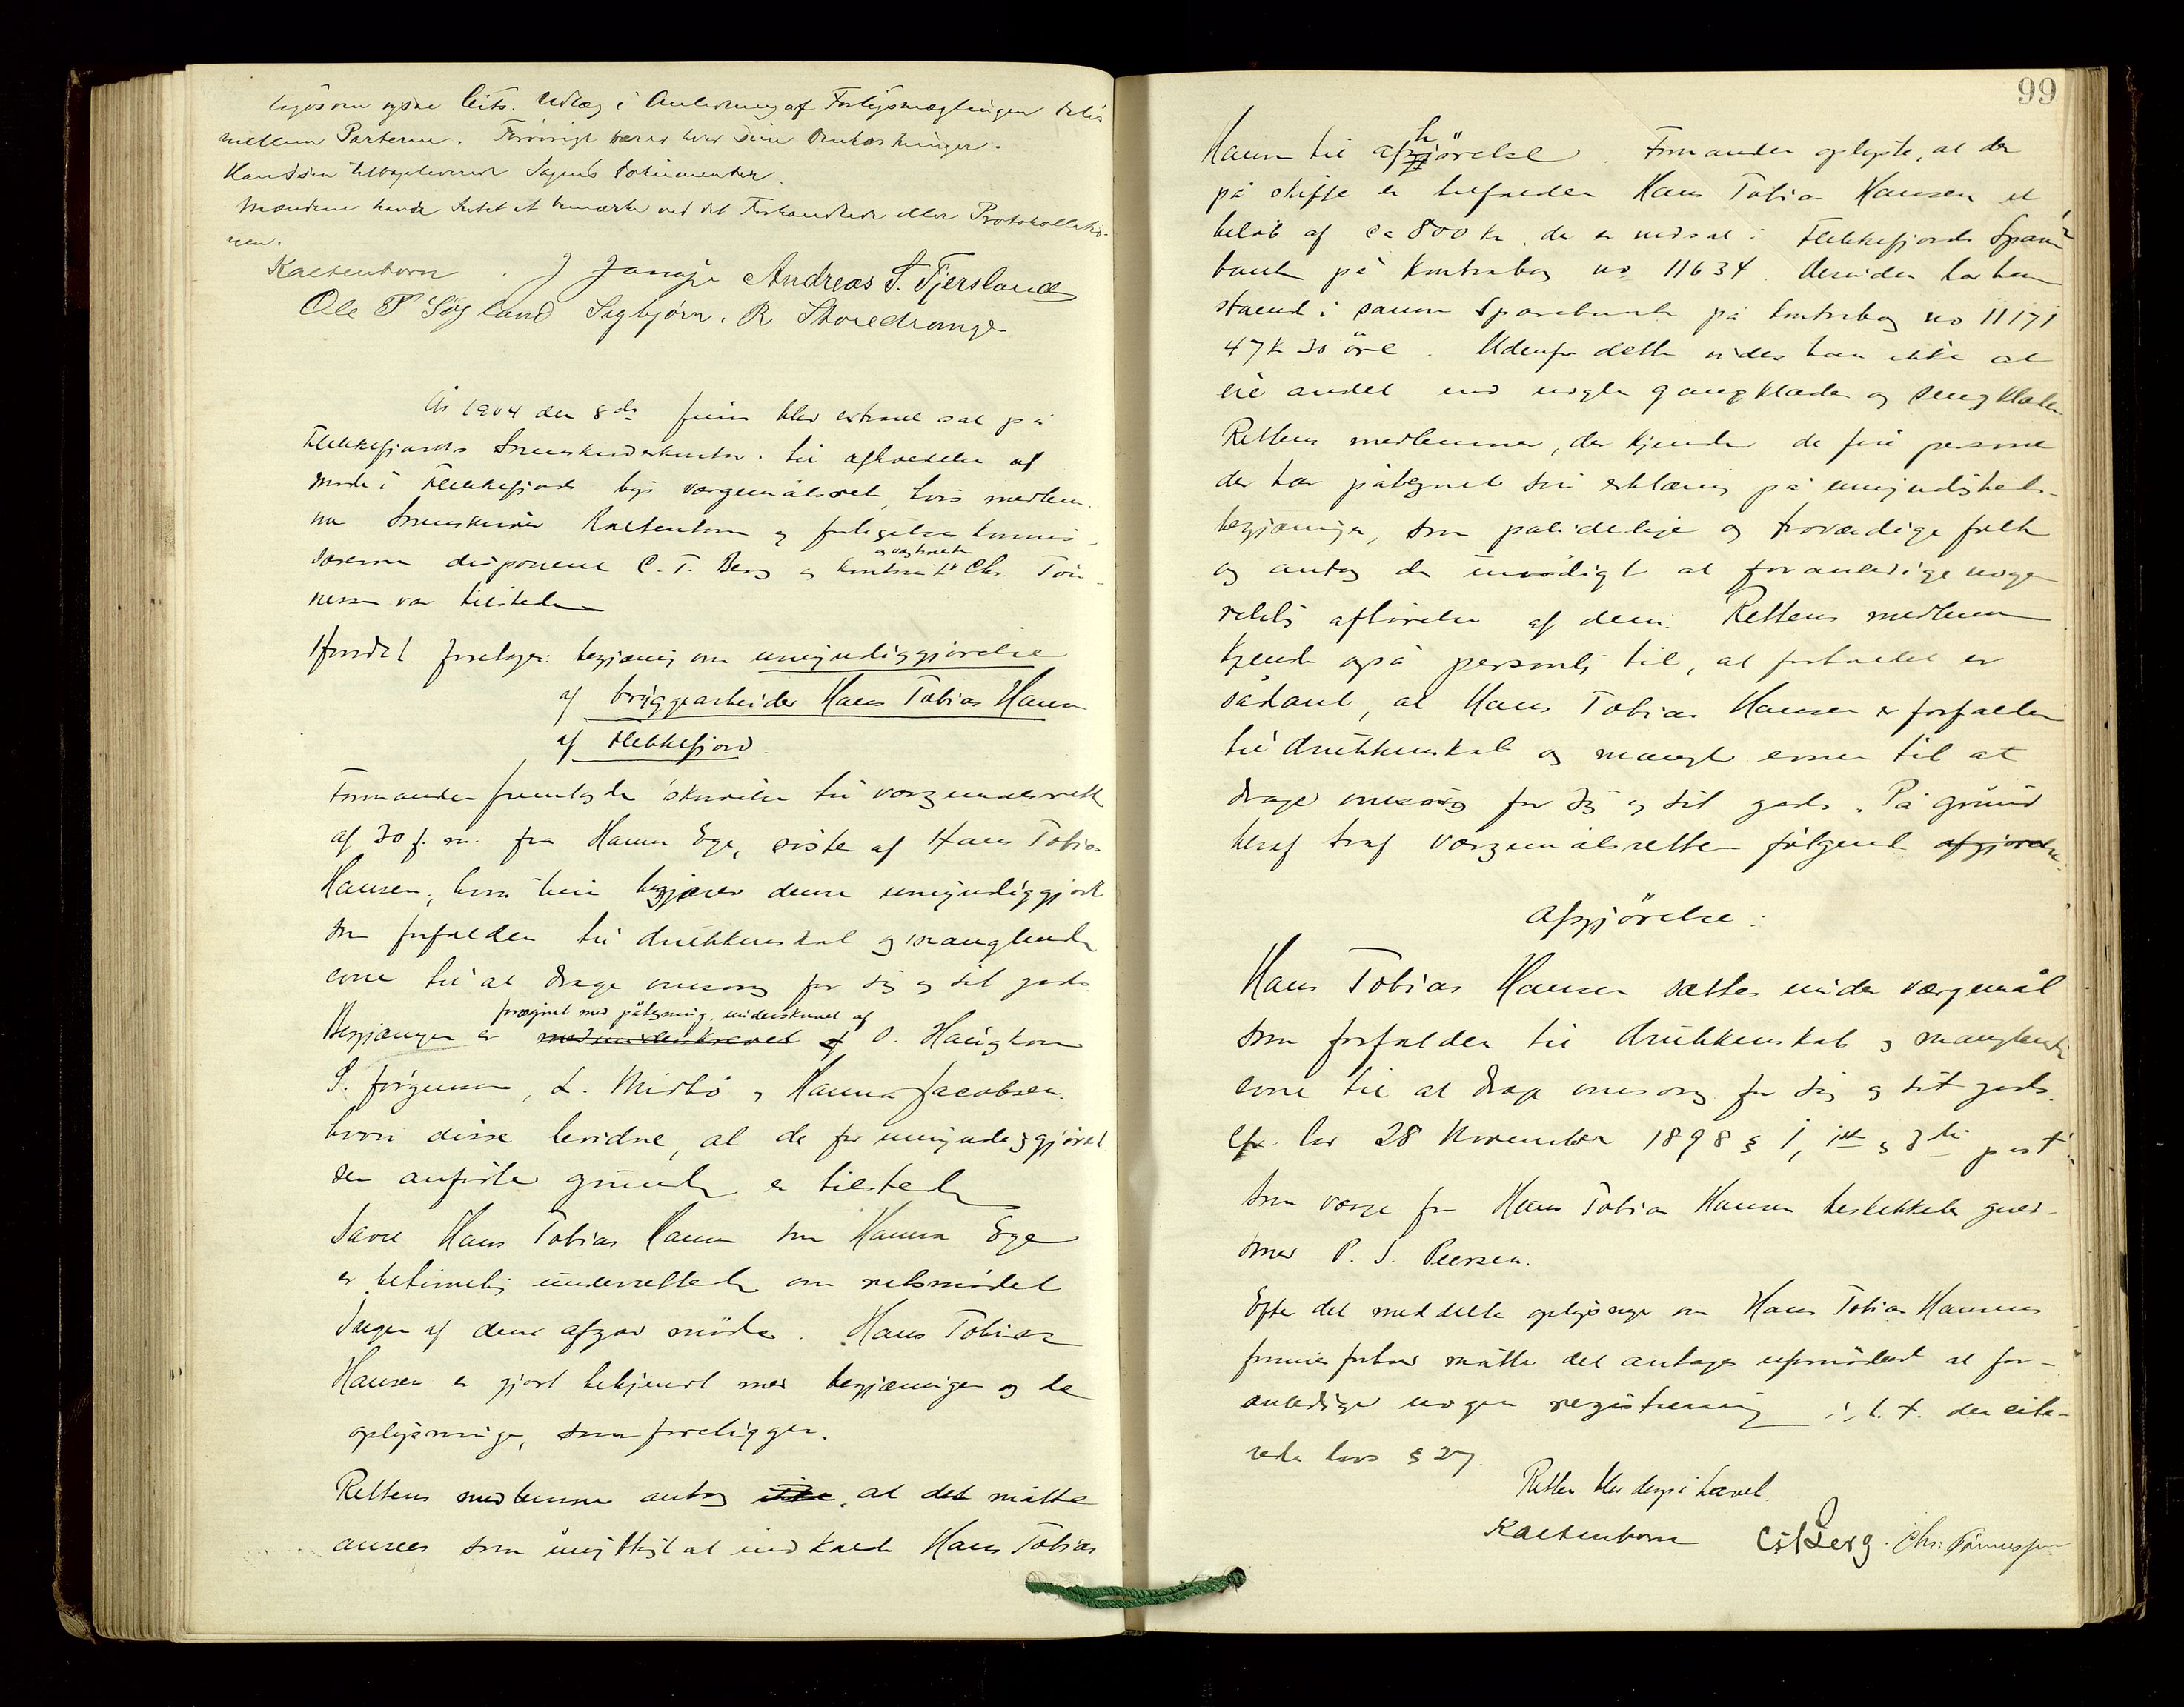 ligesom ogsaa Cits. Udlæg i Anledning af Forligsmæglingen deles
mellem Parterne. Forøvrigt bærer hver sine Omkostninger.
Mændene havde Intet at bemærke ved det Forhandlede eller Protokollatio-
nen.
Kaltenborn. J Andreas S. Fjersland
Ole T Søyland Sigbjørn. R Storedrange
År 1904 den 8de juni blev extraret sat på
Flekkefjords Sorenskriverkontor til afholdelse af
møde i Flekkefjords bys værgemålsret, hvis medlem-
mer Sorenskriver Kaltenborn og forligelseskommis-
særerne disponent C. T. Berg og Chr. Tøn-
nessen var tilstede
Hvorda foretoges: begjæring om umyndiggjørelse
af bryggearbeider Hans Tobias Hansen
af Flekkefjord.
Formanden fremlagde skrivelse til værgemålsretten
af 30 f. m. fra Hanna Ege, søster af Hans Tobias
Hansen, hvori hun begjærer denne umyndiggjort
som forfalden til drukkenskab og manglende
evne til at drage omsorg for sig og sit gods.
forsynet med påtegning, underskrevet af
Begjæringen er medunderskrevet af O. Haugkom
S. Jørgensen, L. Midbø og Hanna Jacobsen.
hvori disse bevidne, at de for umyndiggjørel
sen anførte grunde er tilstede
Såvel Hans Tobias Hansen som Hanna Ege
er betimelig underrettede om retsmødet
Ingen af dem afgav møde. Hans Tobias
Hansen er gjort bekjendt med begjæringen og de
oplysninger, som foreligger.
Rettens medlemmer antog ikke, at det måtte
ansees som unyttigt at indkalde Hans Tobias
99
Hansen til afhørelse. Formanden oplyste, at der
på skifte er tilfalden Hans Tobias Hansen et
beløb af ca 800 kr. der er indsat i Flekkefjords Spare
bank på Kontrabog no 11634. Desuden har han
stående i samme Sparebank på kontrabog no 11171
47 kr 30 øre. Udenfor dette vides han ikke at
eie andet end nogle gangklæder og sengklæder
Rettens medlemmer, der kjender de fire personer
der har påtegnet sin erklæring på umyndigheds-
begjæringen, som pålidelige og troværdige folk
og antog det unødigt at foranledige nogen
retslig afhørelse af dem. Rettens medlemmer
kjendte også personlig til, at forholdet er
sådant, at Hans Tobias Hansen er forfalden
til drukkenskab og mangler evnen til at
drage omsorg for sig og sit gods. På grund
heraf traf værgemålsretten følgende afgjørelse
afgjørelse:
Hans Tobias Hansen sættes under værgemål
som forfalden til drukkenskab og manglende
evne til at drage omsorg for sig og sit gods.
Cfr. lov 28 November 1898 § 1, 1st og 3die post.
Som værge for Hans Tobias Hansen beskikkedes guld-
smed P. S. Peersen.
Efter det meddelte oplysninger om Hans Tobias Hansens
formuesforhold måtte det antages ufornødent at for-
anledige nogen registrering i h. t. den cite-
rede lovs § 27.
Retten blev derpå hævet.
Kaltenborn C T Berg. Chr: Tønnessen